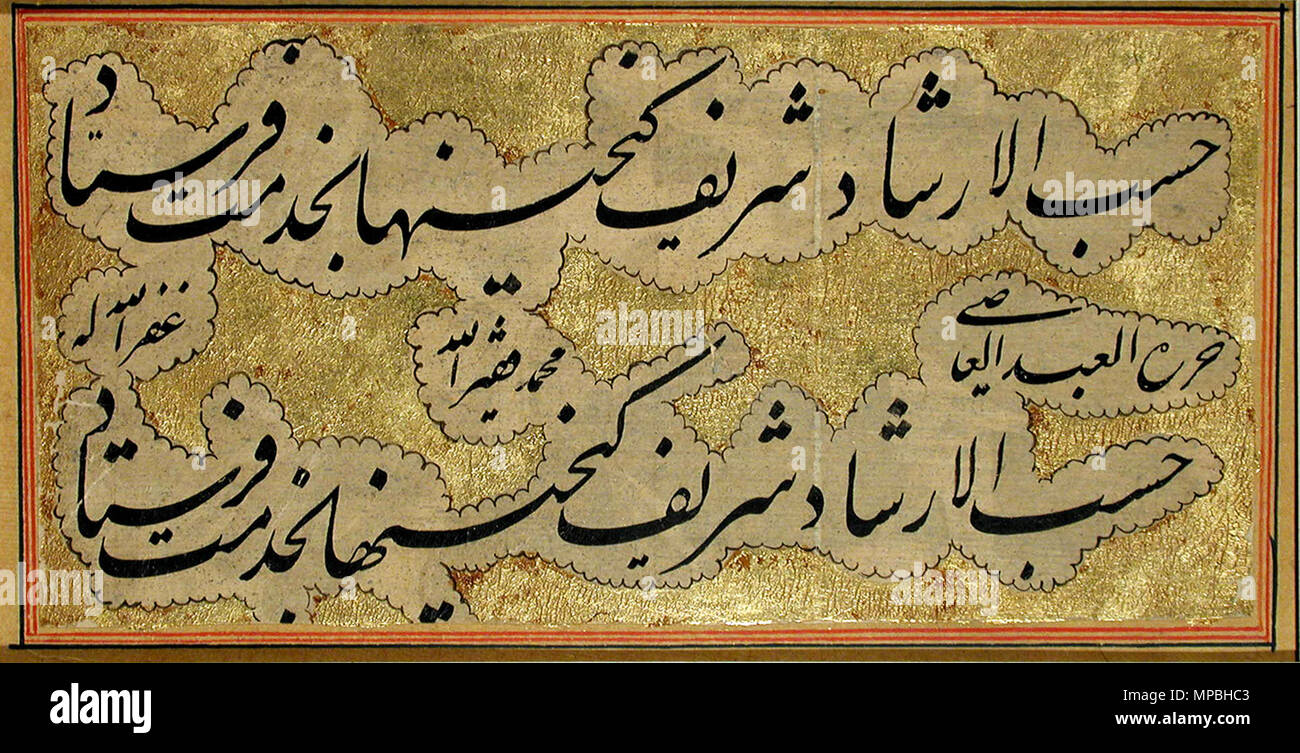 حسب الارشاد شریف کنجینها بخدمت فرستاد
حرره العبد العاصی محمد فقیر الله غفر الله له
حسب الارشاد شریف کنجینها بخدمت فرستاد
alamy
Image ID: MPBHC3
www.alamy.com